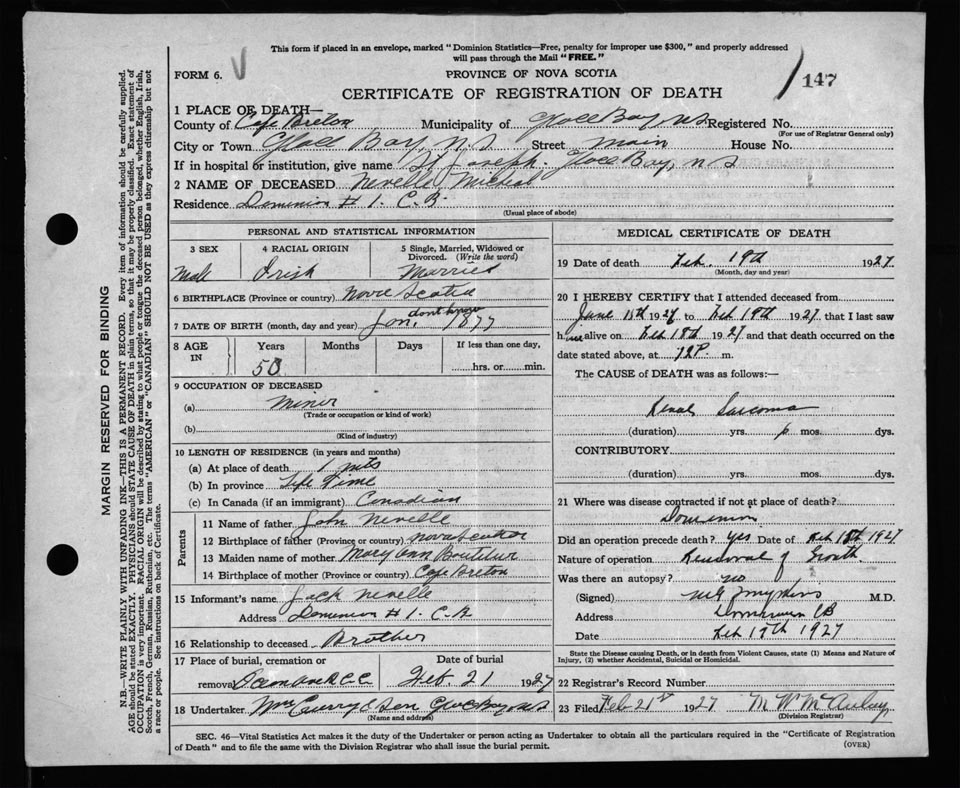 This form if placed in an envelope, marked "Dominion Statistics—Free, penalty for improper use $300," and properly addressed
will pass through the Mail "FREE."
FORM 6.
PROVINCE OF NOVA SCOTIA
147
CERTIFICATE OF REGISTRATION OF DEATH
1 PLACE OF DEATH—
County of Cape Breton Municipality of Glace Bay NS Registered No.
(For use of Registrar General only)
City or Town Glace Bay, N.S Street Main House No.
If in hospital or institution, give name St Joseph. Glace Bay, NS
2 NAME OF DECEASED Nevelle Micheal
Residence Dominion # 1. C.B.
(Usual place of abode)
PERSONAL AND STATISTICAL INFORMATION
3 SEX 4 RACIAL ORIGIN 5 Single, Married, Widowed or
Divorced. (Write the word)
Male Irish Married
6 BIRTHPLACE (Province or country) Nova Scotia
7 DATE OF BIRTH (month, day and year) Jan, dont know 1877
8 AGE IN Years Months Days If less than one day,
50 hrs. or min.
9 OCCUPATION OF DECEASED
(a) Miner
(Trade or occupation or kind of work)
(b)
(Kind of industry)
10 LENGTH OF RESIDENCE (in years and months)
(a) At place of death 1 mts
(b) In province Life Time
(c) In Canada (if an immigrant) Canadian
Parents
11 Name of father John Nevelle
12 Birthplace of father (Province or country) Nova Scotia
13 Maiden name of mother Mary Ann Boutilier
14 Birthplace of mother (Province or country) Cape Breton
15 Informant's name Jack Nevelle
Address Dominion # 1. C.B
16 Relationship to deceased Brother
17 Place of burial, cremation or Date of burial
removal Feb. 21 1927
18 Undertaker McCurry & Son Glace Bay NS
(Name and address)
MEDICAL CERTIFICATE OF DEATH
19 Date of death Feb. 19th 1927
(Month, day and year)
20 I HEREBY CERTIFY that I attended deceased from
June 192 to Feb 19th 1927 that I last saw
h im alive on Feb 19th 1927 and that death occurred on the
date stated above, at 12P. m.
The CAUSE of DEATH was as follows:—
Renal Sarcoma
(duration) yrs. 6 mos. dys.
CONTRIBUTORY
(duration) yrs. mos. dys.
21 Where was disease contracted if not at place of death?
Dominion
Did an operation precede death? yes Date of Feb 1927
Nature of operation Removal of Growth
Was there an autopsy? no
(Signed) M.D.
Address Dominion CB
Date Feb 19th 1927
State the Disease causing Death, or in death from Violent Causes, state (1) Means and Nature of
Injury, (2) whether Accidental, Suicidal or Homicidal.
22 Registrar's Record Number
23 Filed Feb 21st 1927 M W McAulay
(Division Registrar)
SEC. 46—Vital Statistics Act makes it the duty of the Undertaker or person acting as Undertaker to obtain all the particulars required in the "Certificate of Registration
of Death" and to file the same with the Division Registrar who shall issue the burial permit.
(OVER)
MARGIN RESERVED FOR BINDING
N.B.—WRITE PLAINLY WITH UNFADING INK—THIS IS A PERMANENT RECORD. Every item of information should be carefully supplied.
AGE should be stated EXACTLY. PHYSICIANS should STATE CAUSE OF DEATH in plain terms, so that it may be properly classified. Exact statement of
OCCUPATION is very important. RACIAL ORIGIN will be described by stating to what people or tongue the deceased person belonged, whether English, Irish,
Scotch, French, German, Russian, Ruthenian, etc. The terms "AMERICAN" or "CANADIAN" SHOULD NOT BE USED as they express citizenship but not
a race or people. See instructions on back of Certificate.